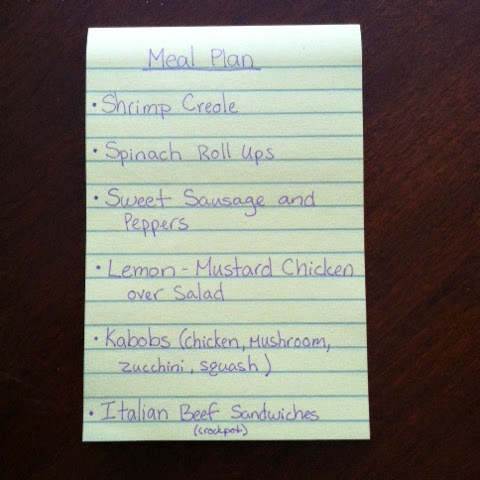 Meal Plan
• Shrimp Creole
• Spinach Roll Ups
• Sweet Sausage and
Peppers
• Lemon-Mustard Chicken
over Salad
• Kabobs (chicken, Mushroom,
zucchini, squash)
• Italian Beef Sandwiches
(crockpot)